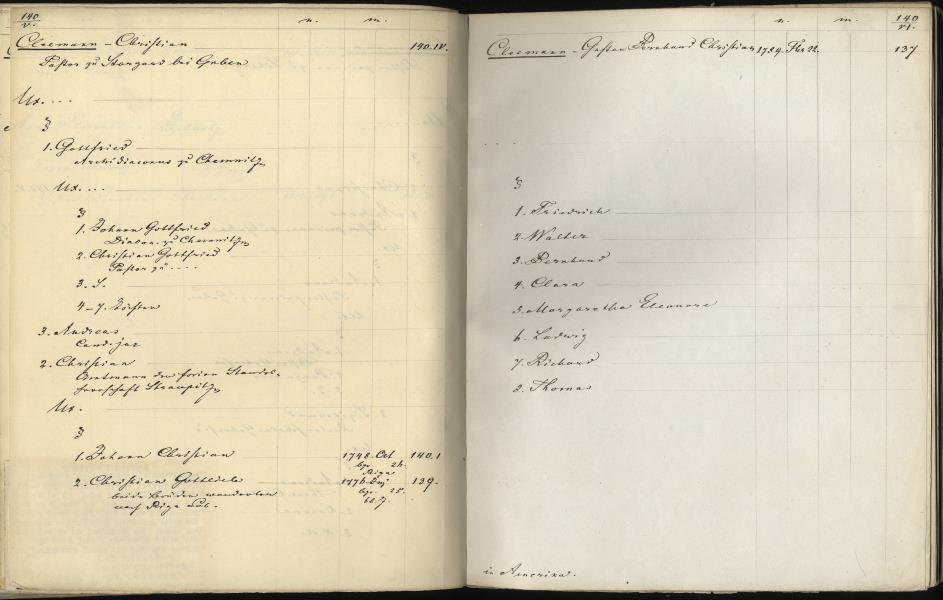 140
V.
n. m.
Cleemann - Christian 140.IV.
Pastor zu Stargard bei Guben
Ux. ...
1. Gottfried
Archidiaconus zu Chemnitz
Ux. ...
1. Johann Gottfried
Diacon. zu Chemnitz
2. Christian Gottfried
Pastor zu ....
3. S.
4-7. Töchter
3. Andreas
Cand. jur.
2. Christian
Amtmann der freien Standes-
herrschaft Straupitz
Ux.
1. Johann Christian 1748. Oct 140.I
26.
Riga
2. Christian Gottlieb 139.
beide Brüder wanderten
nach Riga
140
VI.
n. m.
Cleemann - Gustav Bernhard Christian 137
1. Friedrich
2. Walter
3. Bernhard
4. Clara
5. Margaretha Eleonore
6. Ludwig
7. Richard
8. Thomas
in Amerika.